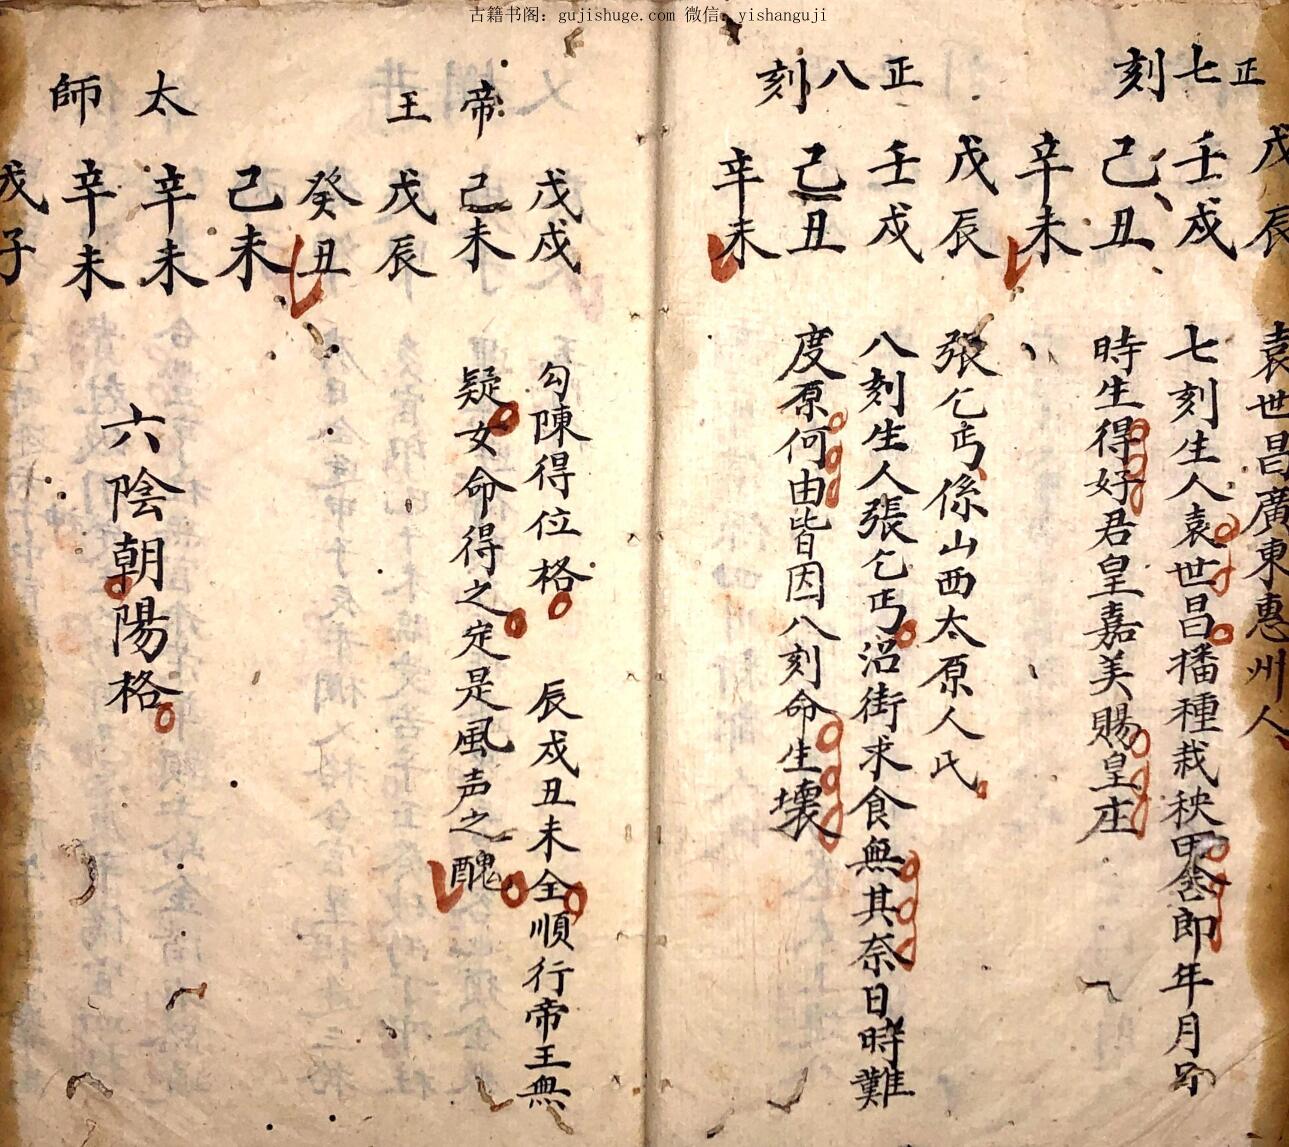 古籍书阁：gujishuge.com 微信：yishanguji
正七刻
戊辰
壬戌
己丑
辛未
袁世昌廣東惠州人
七刻生人袁世昌播種栽秧田舍郎年月
時生得好君皇嘉美賜皇庄
正八刻
戊辰
壬戌
己丑
辛未
張乞丐係山西太原人氏
八刻生人張乞丐沿街求食無其奈日時難
度原何由皆因八刻命生壞
帝王
戊戌
己未
戊辰
癸丑
勾陳得位格 辰戌丑未全順行帝王無
疑女命得之定是風声之醜
太師
己未
辛未
辛未
戊子
六陰朝陽格